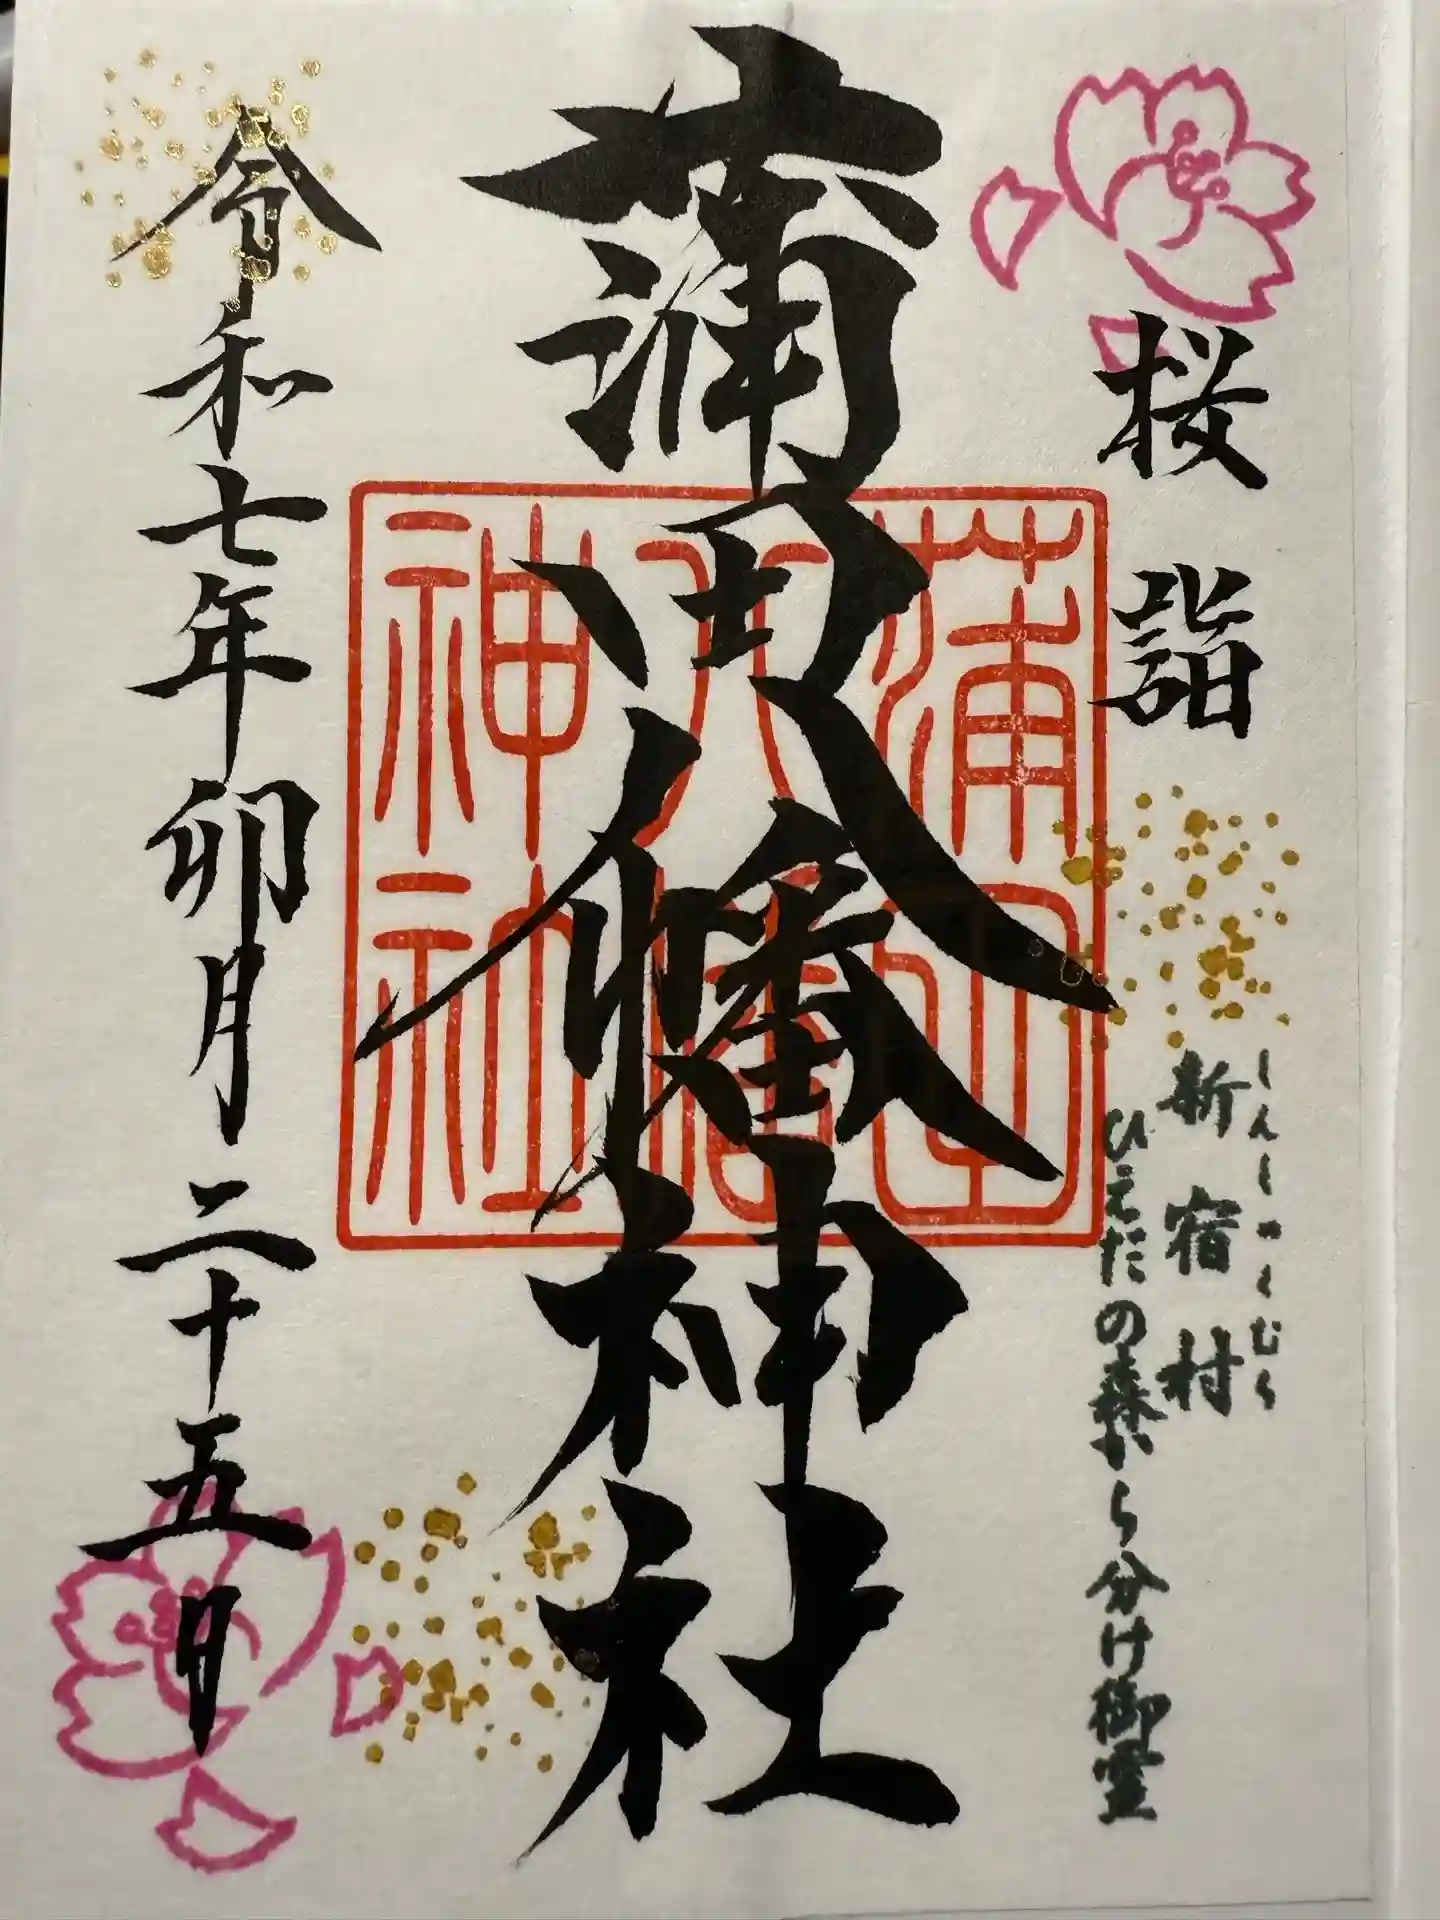 桜詣
しんしゅくむら
新宿村
ひえだの森から分け御霊
蒲田八幡神社
蒲田
八幡
神社
令和七年卯月二十五日